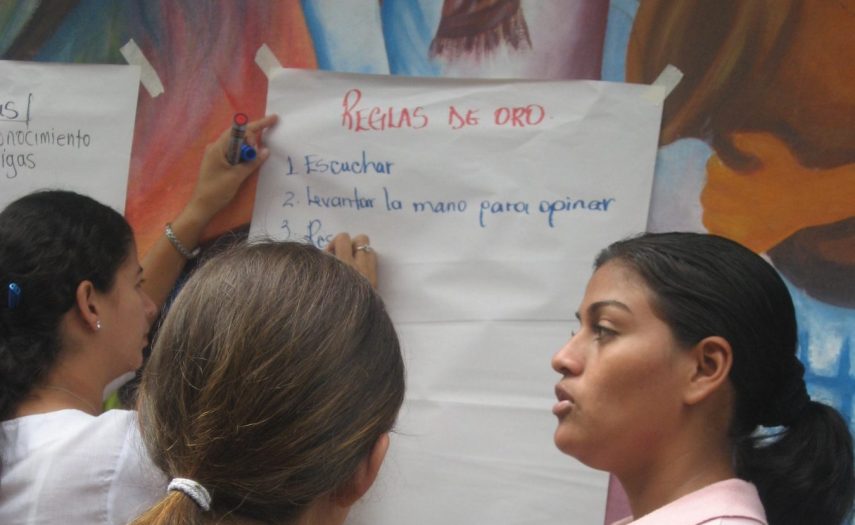 as/
onocimiento
igas
REGLAS DE ORO.
1 Escuchar
2. Levantar la mano para opinar
3. Res